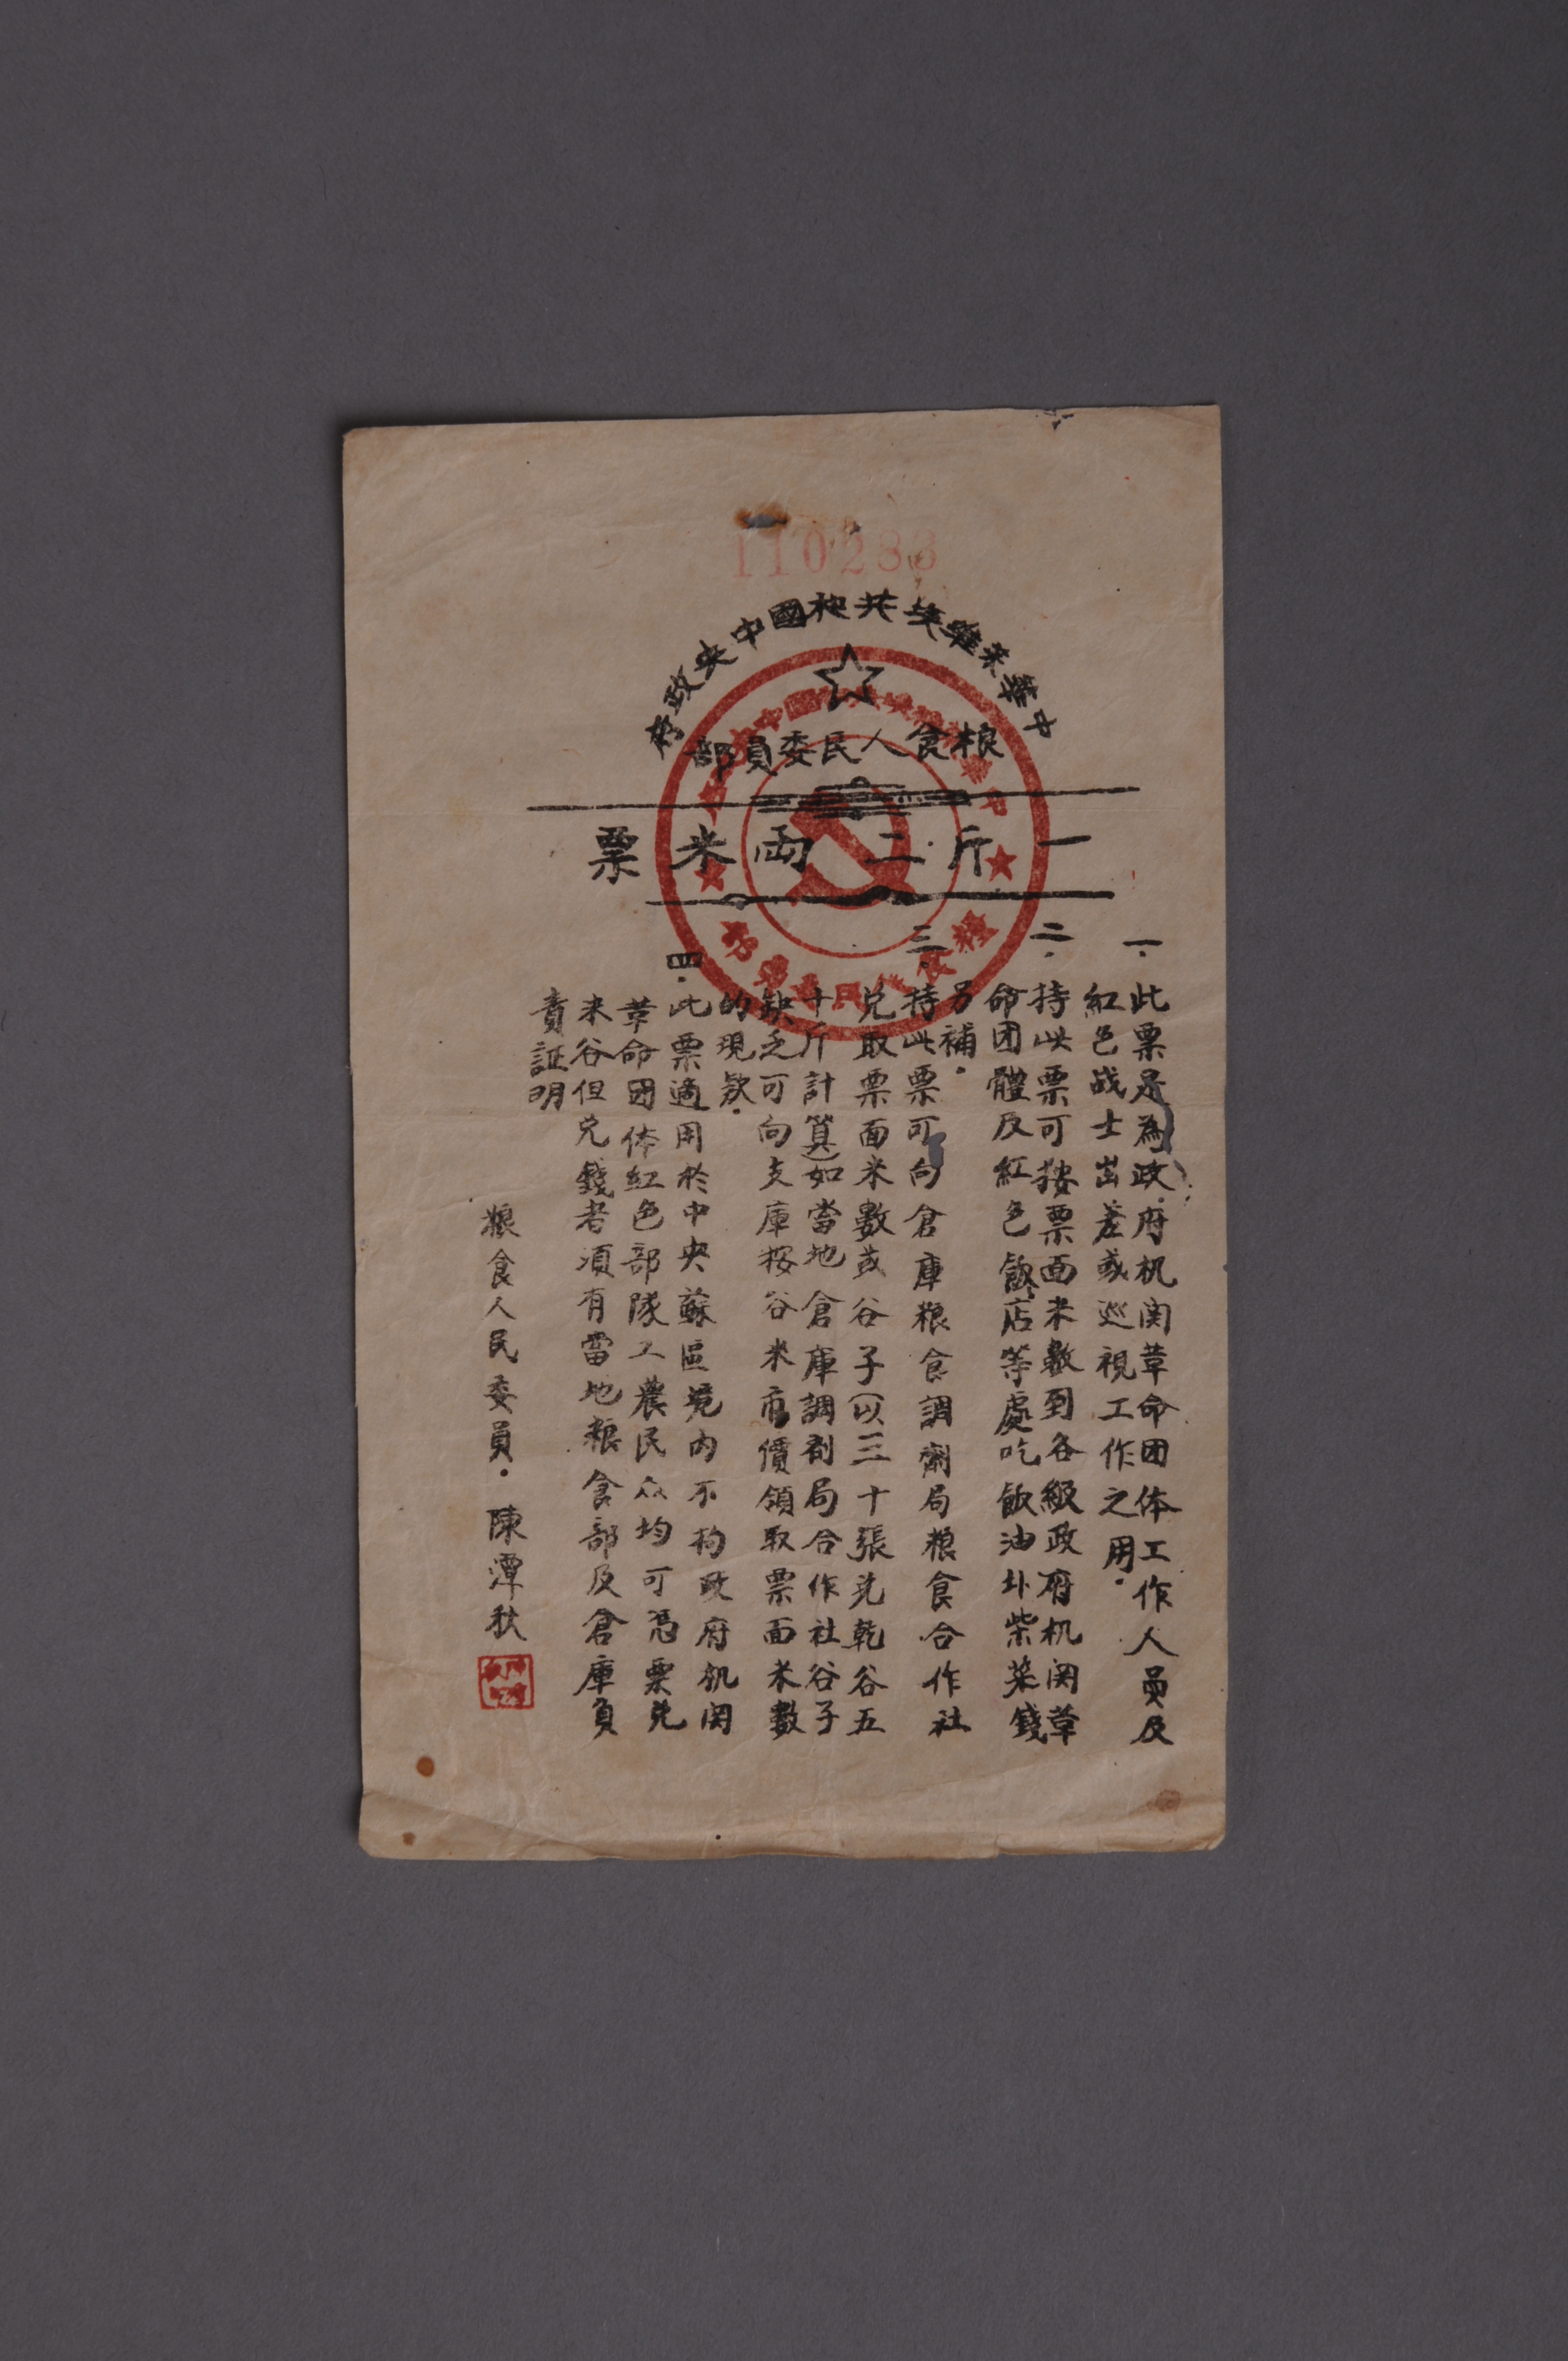 110283
中華苏維埃共和國中央政府
粮食人民委員部
一斤二兩米票
一.此票是為政府机関革命団体工作人員及
紅色战士出差或巡視工作之用.
二.持此票可按票面米數到各級政府机関革
命団體及紅色飯店等處吃飯油卦柴菜錢
另補.
三.持此票可向倉庫粮食調劑局粮食合作社
兑取票面米數或谷子(以三十張兑乾谷五
十斤計算)如當地倉庫調剤局合作社谷子
缺乏可向支庫按谷米市價領取票面米數
的現欵.
四.此票適用於中央蘇區境内不拘政府机関
革命団体紅色部隊工農民众均可憑票兑
米谷但兑錢者須有當地粮食部及倉庫負
責証明
粮食人民委員.陳潭秋